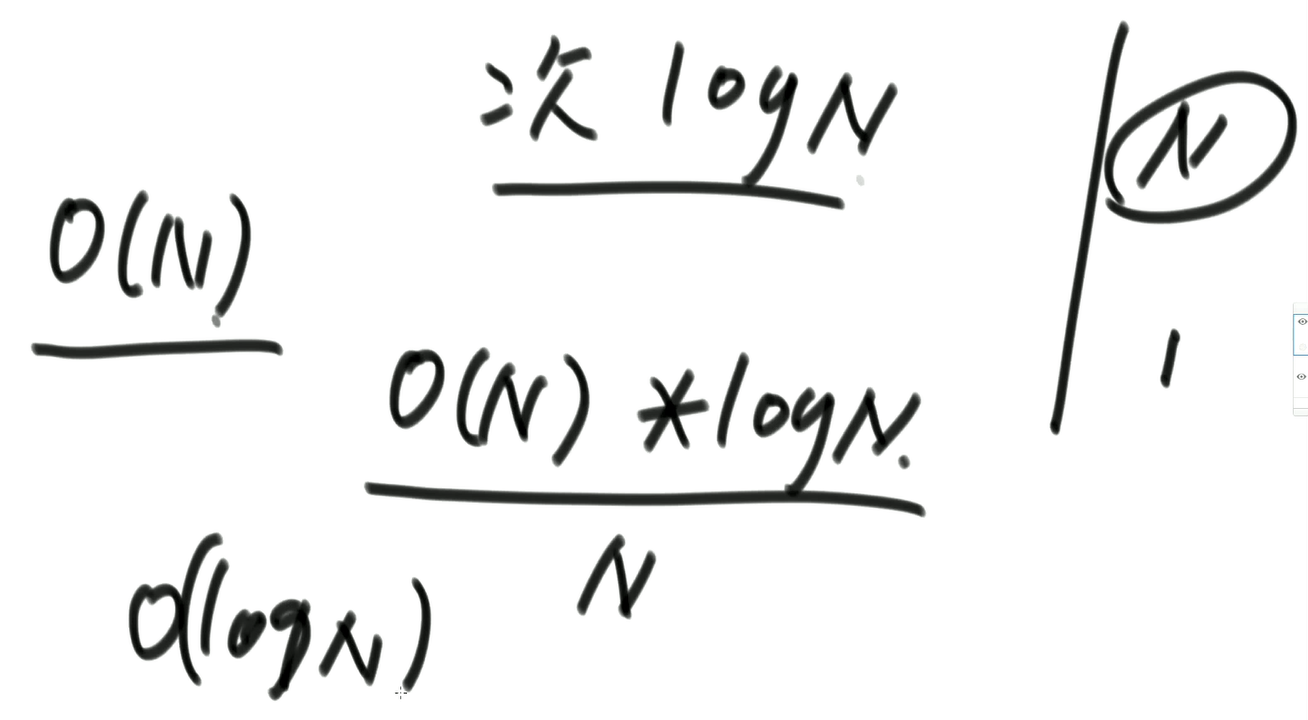 次 logN
N
O(N)
1
O(N) *logN.
N
O(logN)